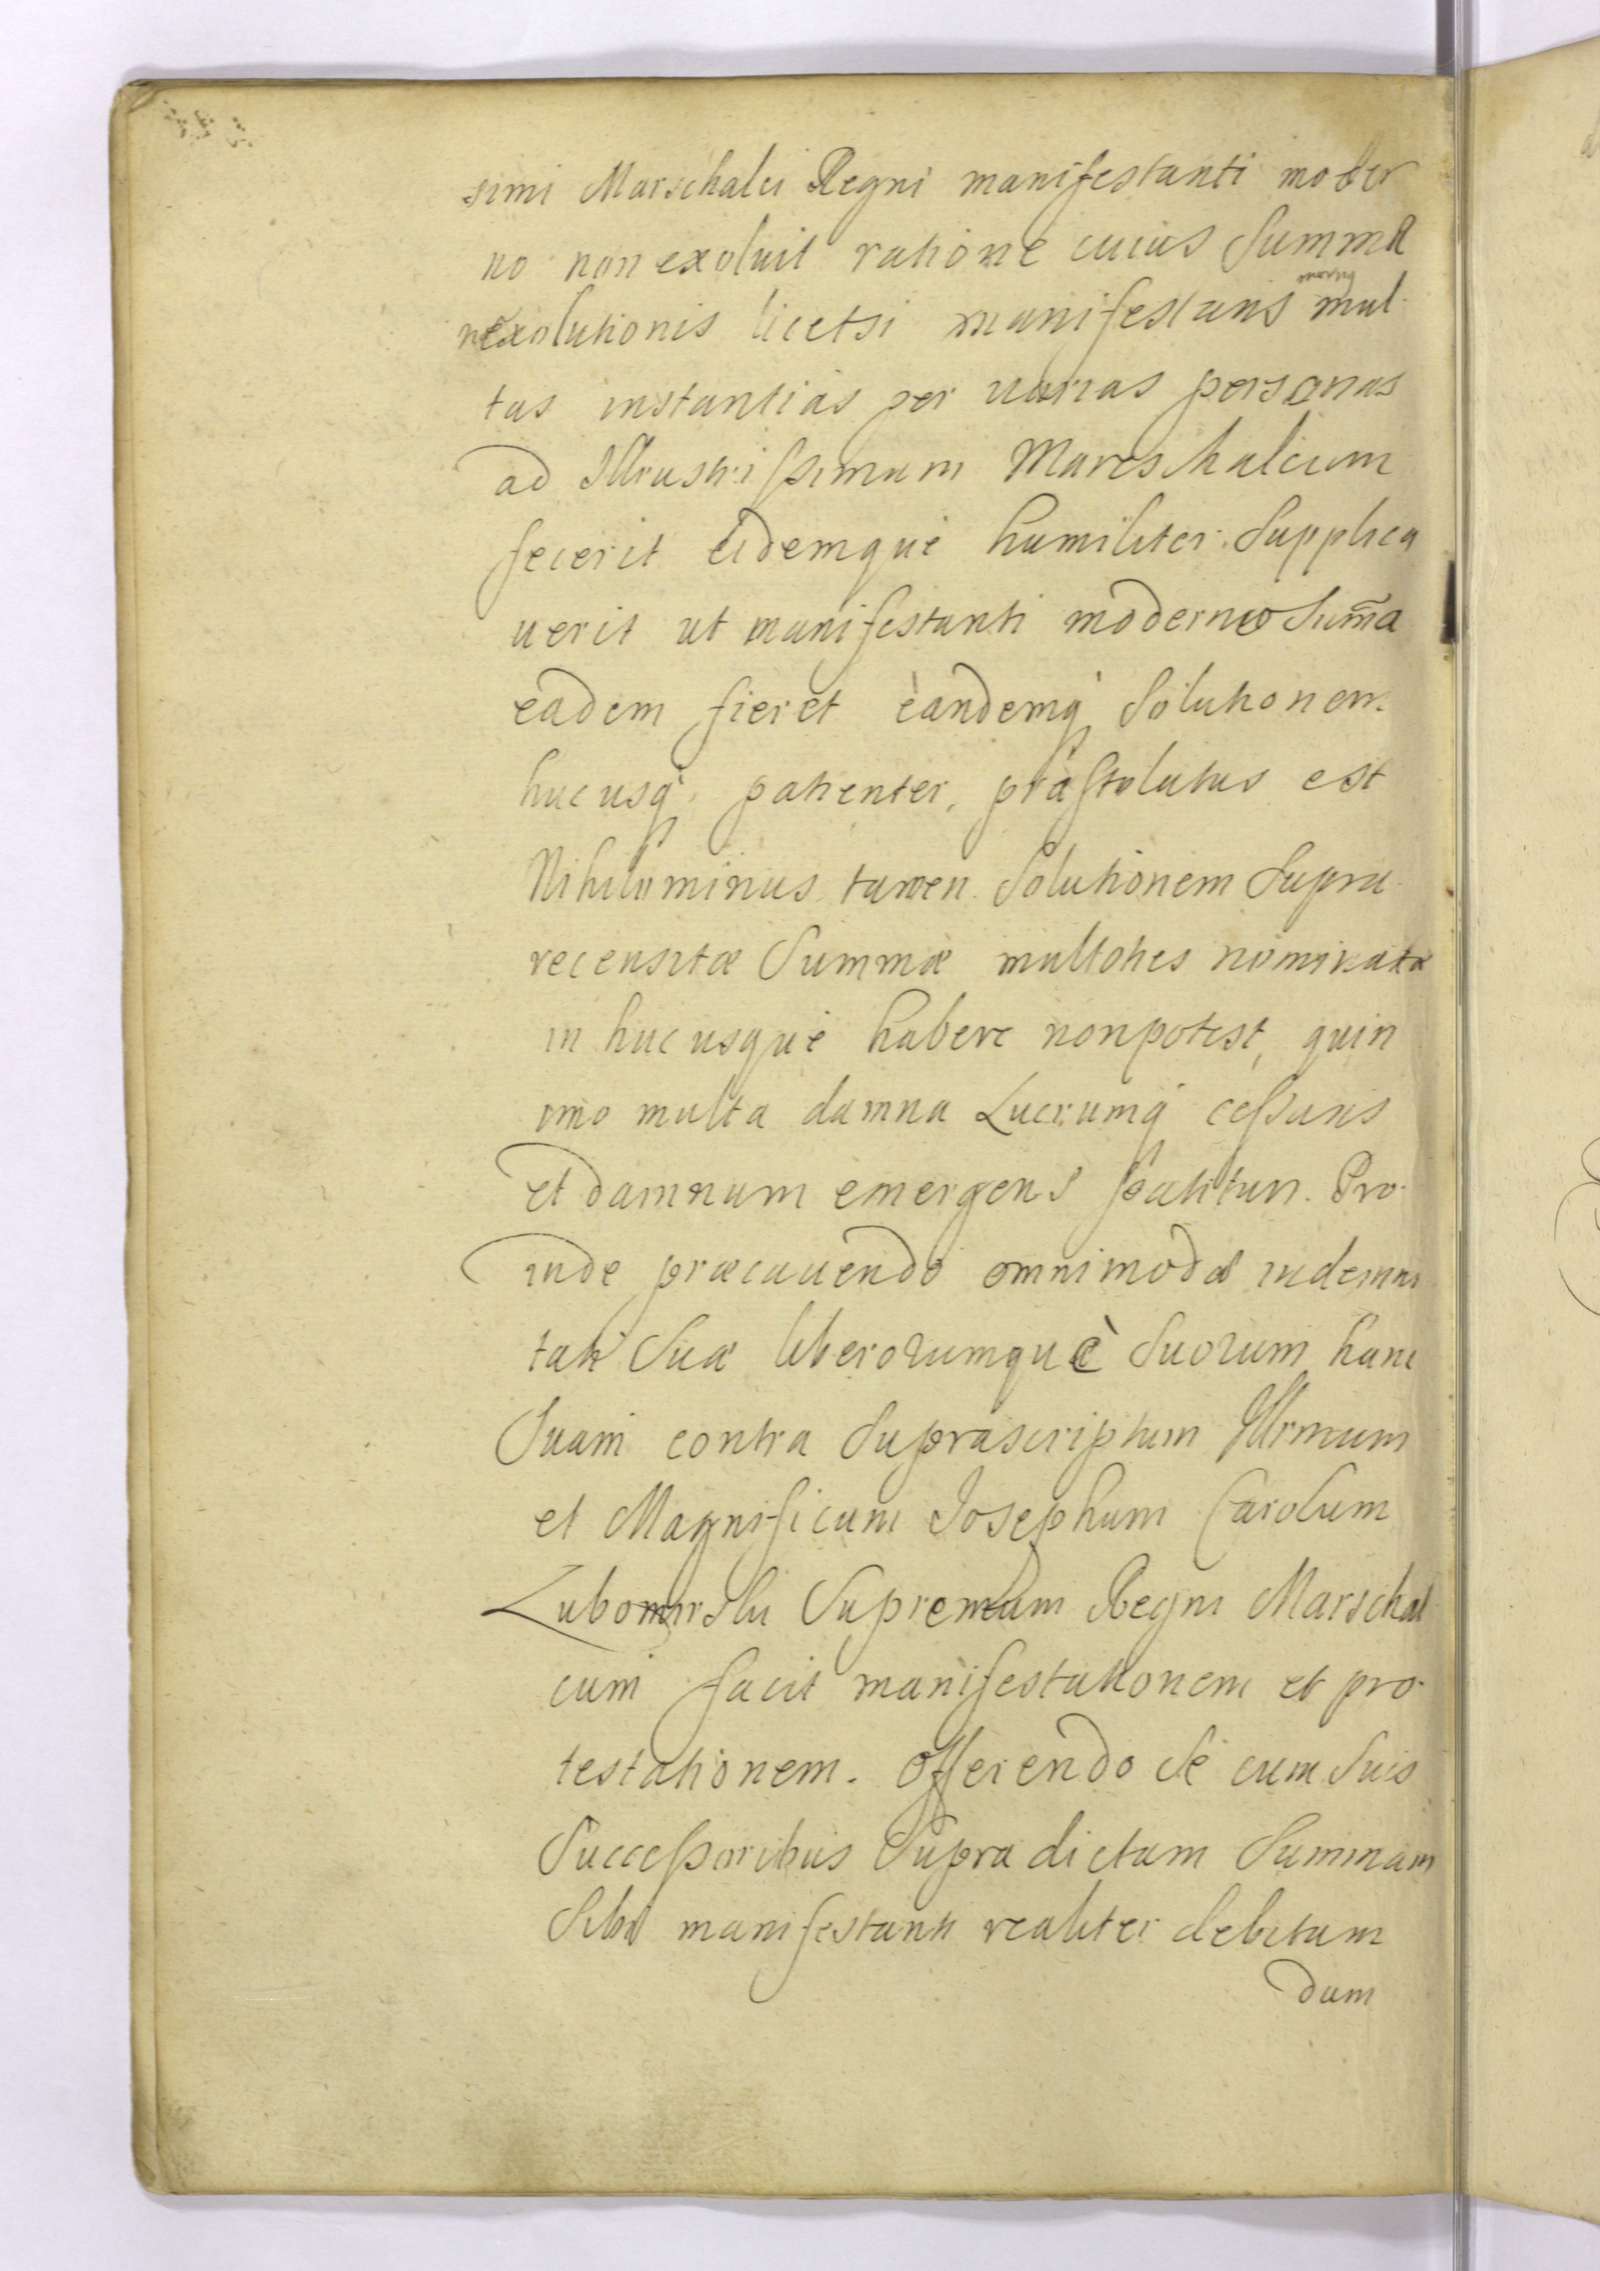 simi Marschalci Regni manifestanti moder
no non exoluit ratione cuius Summæ
nexolutionis licetsi manifestans mul-
tas instantias per varias personas
ad Illrustrissimum Mareschalcum
fecerit eidemque humiliter Supplica
uerit ut manifestanti moderno Sum̃a
eadem fieret eandemq̀ Solutionem
hucusq̀ patienter, præstolatus est
Nihilominus tamen Solutionem Supra-
recensitæ Summæ multoties nominatæ
in huc usque habere nonpotest, quin
imo multa damna Lucrumq̀ cessans
et damnum emergens patitur. Pro-
inde præcauendo omnimodæ indemni
tati Suæ liberorumquè Suorum hanc
Suam contra Suprascriptum Illrmum
et Magnificum Josephum Carolum
Lubomirski Supremum Regni Marschal
cum facit manifestationem et pro-
testationem. Offerendo Se cum Suis
Successoribus Supra dictam Summam
Sibi manifestanti realiter debitam
dum